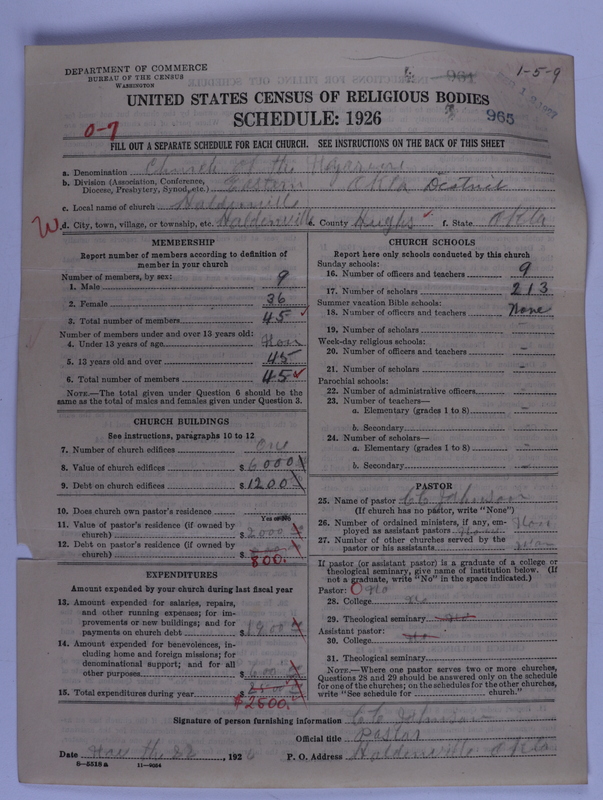 DEPARTMENT OF COMMERCE
BUREAU OF THE CENSUS
WASHINGTON
961
1-5-9
UNITED STATES CENSUS OF RELIGIOUS BODIES
SCHEDULE: 1926
965
0-7
FILL OUT A SEPARATE SCHEDULE FOR EACH CHURCH. SEE INSTRUCTIONS ON THE BACK OF THIS SHEET
a. Denomination Church of the Nazarene
b. Division (Association, Conference, Diocese, Presbytery, Synod, etc.) Eastern Okla District
c. Local name of church Holdenville
W. d. City, town, village, or township, etc. Holdenville e. County Hughes f. State Okla
MEMBERSHIP
Report number of members according to definition of
member in your church
Number of members, by sex:
1. Male 9
2. Female 36
3. Total number of members 45
Number of members under and over 13 years old:
4. Under 13 years of age Non
5. 13 years old and over 45
6. Total number of members 45
NOTE.—The total given under Question 6 should be
same as the total of males and females given under Question 3.
CHURCH BUILDINGS
See instructions, paragraphs 10 to 12
7. Number of church edifices one
8. Value of church edifices $ 6000
9. Debt on church edifices $ 1200
10. Does church own pastor's residence
Yes or No
11. Value of pastor's residence (if owned by
church) $ 2000
12. Debt on pastor's residence (if owned by
church) $
800.
EXPENDITURES
Amount expended by your church during last fiscal year
13. Amount expended for salaries, repairs,
and other running expenses; for im-
provements or new buildings; and for
payments on church debt $ 1900
14. Amount expended for benevolences, in-
cluding home and foreign missions; for
denominational support; and for all
other purposes $ 600
15. Total expenditures during year $
$2500.
CHURCH SCHOOLS
Report here only schools conducted by this church
Sunday schools:
16. Number of officers and teachers 9
17. Number of scholars 213
Summer vacation Bible schools:
18. Number of officers and teachers None
19. Number of scholars -
Week-day religious schools:
20. Number of officers and teachers -
21. Number of scholars -
Parochial schools:
22. Number of administrative officers -
23. Number of teachers—
a. Elementary (grades 1 to 8) -
b. Secondary -
24. Number of scholars—
a. Elementary (grades 1 to 8) -
b. Secondary -
PASTOR
25. Name of pastor C C Johnson
(If church has no pastor, write "None")
26. Number of ordained ministers, if any, em-
ployed as assistant pastors
27. Number of other churches served by the
pastor or his assistants
If pastor (or assistant pastor) is a graduate of a college or
theological seminary, give name of institution below. (If
not a graduate, write "No" in the space indicated.)
Pastor: O No
28. College No
29. Theological seminary No
Assistant pastor:
30. College No
31. Theological seminary
NOTE.—Where one pastor serves two or more churches,
Questions 28 and 29 should be answered only on the schedule
for one of the churches; on the schedules for the other churches,
write "See schedule for church."
Signature of person furnishing information C C Johnson
Official title Pastor
Date Nov th 22, 1926 P. O. Address Holdenville Okla
8-5518 a 11-9064